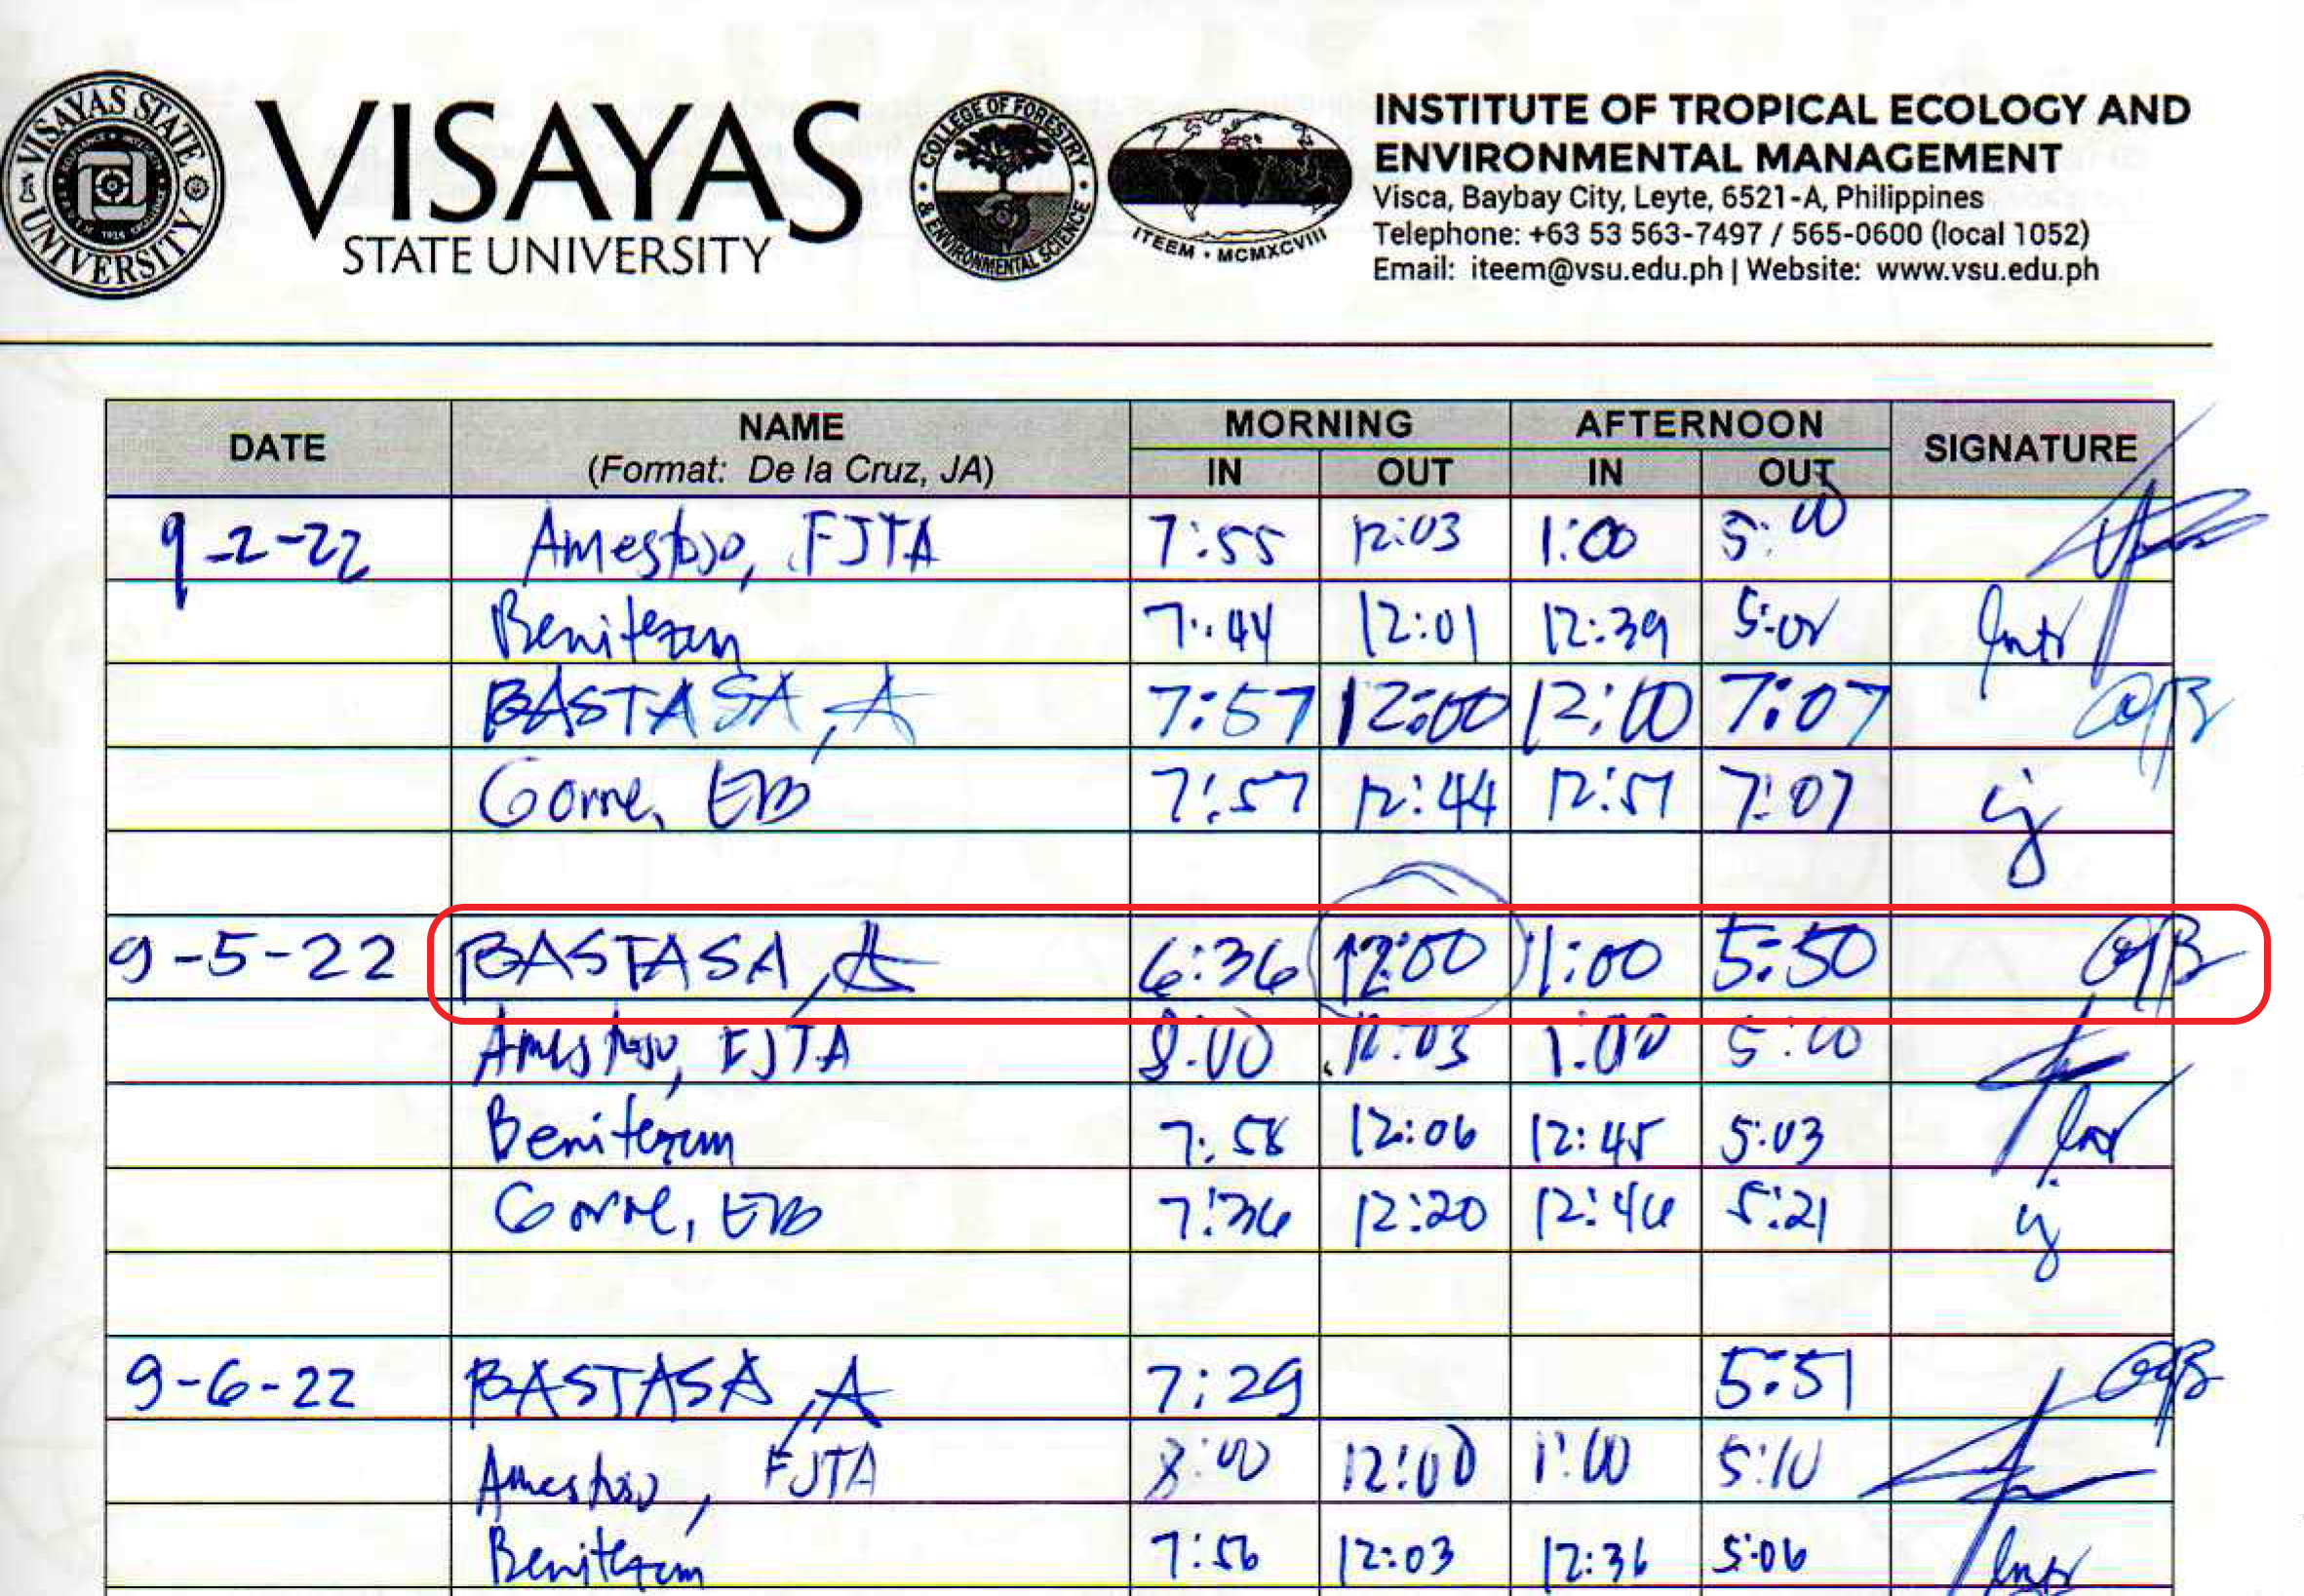 VISAYAS STATE UNIVERSITY
VISAYAS
STATE UNIVERSITY
COLLEGE OF FORESTRY & ENVIRONMENTAL SCIENCE
ITEEM • MCMXCVIII
INSTITUTE OF TROPICAL ECOLOGY AND
ENVIRONMENTAL MANAGEMENT
Visca, Baybay City, Leyte, 6521-A, Philippines
Telephone: +63 53 563-7497 / 565-0600 (local 1052)
Email: iteem@vsu.edu.ph | Website: www.vsu.edu.ph
DATE NAME MORNING AFTERNOON SIGNATURE
(Format: De la Cruz, JA) IN OUT IN OUT
9-2-22 Amestoso, FJTA 7:55 12:03 1:00 5:00
7:44 12:01 12:39 5:02
BASTASA, A 7:57 12:00 12:10 7:07
Gorne, EB 7:57 12:44 12:57 7:07
9-5-22 BASTASA, A 6:36 12:00 1:00 5:50
Amestoso, FJTA 8:00 12:03 1:00 5:00
7:58 12:06 12:45 5:03
Gorne, EB 7:36 12:20 12:46 5:21
9-6-22 BASTASA, A 7:29 5:51
Amestoso, FJTA 8:00 12:00 1:00 5:10
7:56 12:03 12:36 5:06